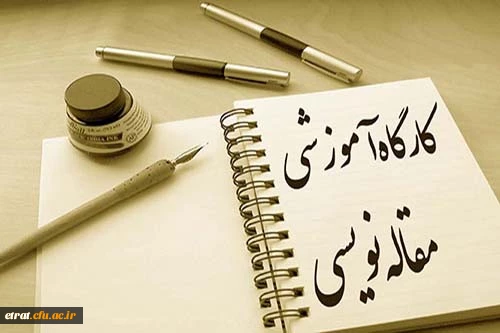 کارگاه آموزشی
مقاله نویسی
etrat.cfu.ac.ir